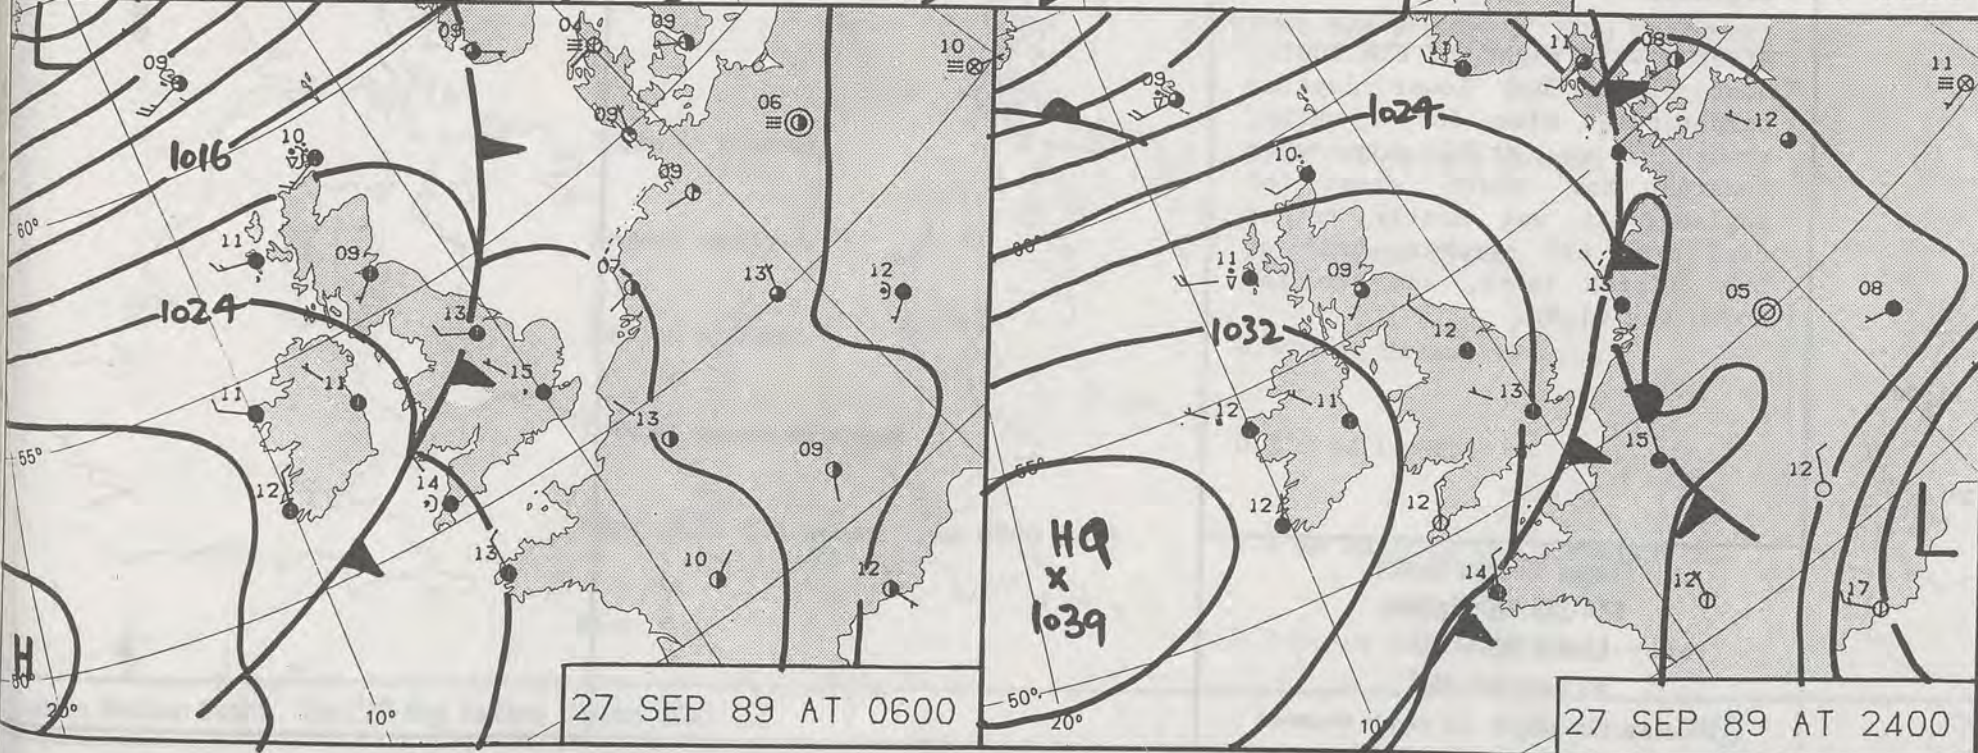 09
04
09
10
09
06
1016
10
09
60°
09
11
09
07
13
12
1024
13
11
11
15
13
55°
09
12
14
H
13
10
12
50°
20°
10°
27 SEP 89 AT 0600
L
11
11
08
11
09
1024
12
10
60°
11
09
13
05
08
1032
12
12
11
13
15
55°
12
12
12
HQ
x
1039
14
12
17
L
50°
20°
10°
27 SEP 89 AT 2400